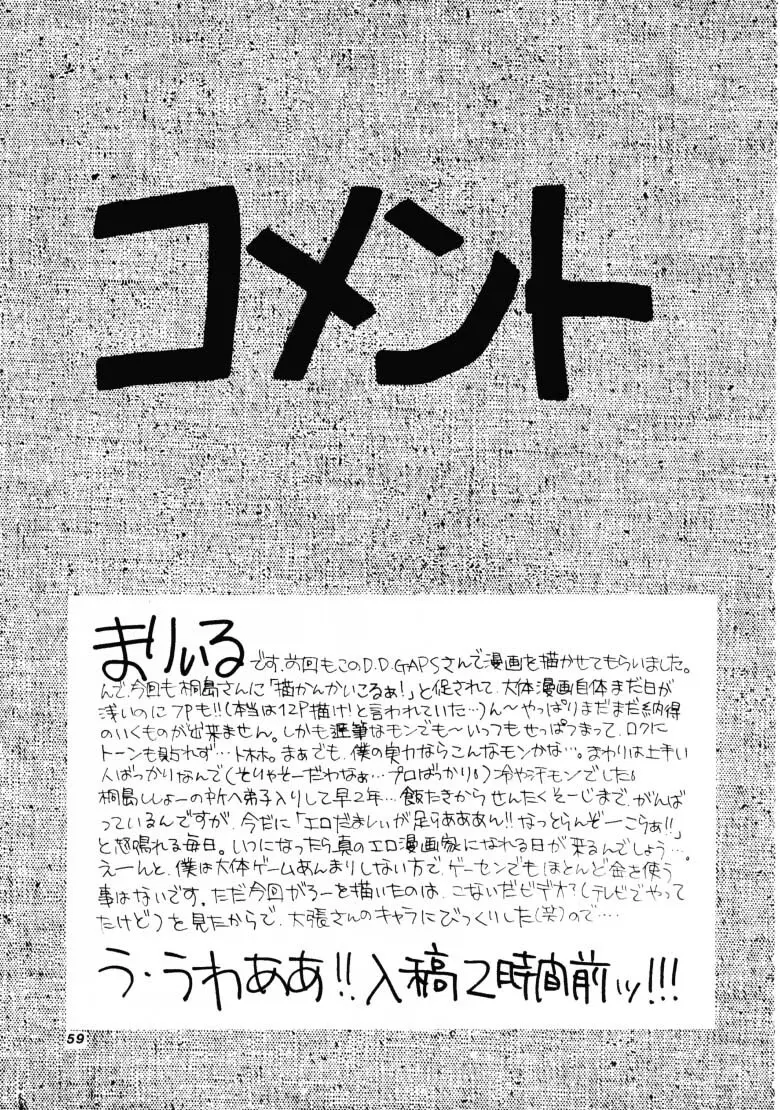 コメント
まりいるです。前回もこのD.D.GAPSさんで漫画を描かせてもらいました。
んで、今回も桐島さんに「描かんかいこるぁ!」と促されて、大体漫画自体まだ日が
浅いのに7Pも!!(本当は12P描け!と言われていた…)ん〜やっぱりまだまだ納得
のいくものが出来ません。しかも遅筆なモンでも〜いっつもせっぱつまって、ロクに
トーンも貼れず…トホホ。まぁでも、僕の実力ならこんなモンかな…。まわりは上手い
人ばっかりなんで(そりゃそーだわなぁ…プロばっかり)冷や汗モンでした
桐島ししょーの所へ弟子入りして早2年…飯たきからせんたくそーじまで、がんば
っているんですが、今だに「エロだましいが足らあああん!!なっとらんぞーこらぁ!!」
と怒鳴れる毎日。いつになったら真のエロ漫画家になれる日が来るんでしょう…。
えーんと、僕は大体ゲームあんまりしない方で、ゲーセンでもほとんど金を使う
事はないです。ただ今回がろーを描いたのは、こないだビデオ?(テレビでやって
たけど)を見たからで、大張さんのキャラにびっくりした(笑)ので…
う・うわあああ!!入稿2時間前ッ!!!
59